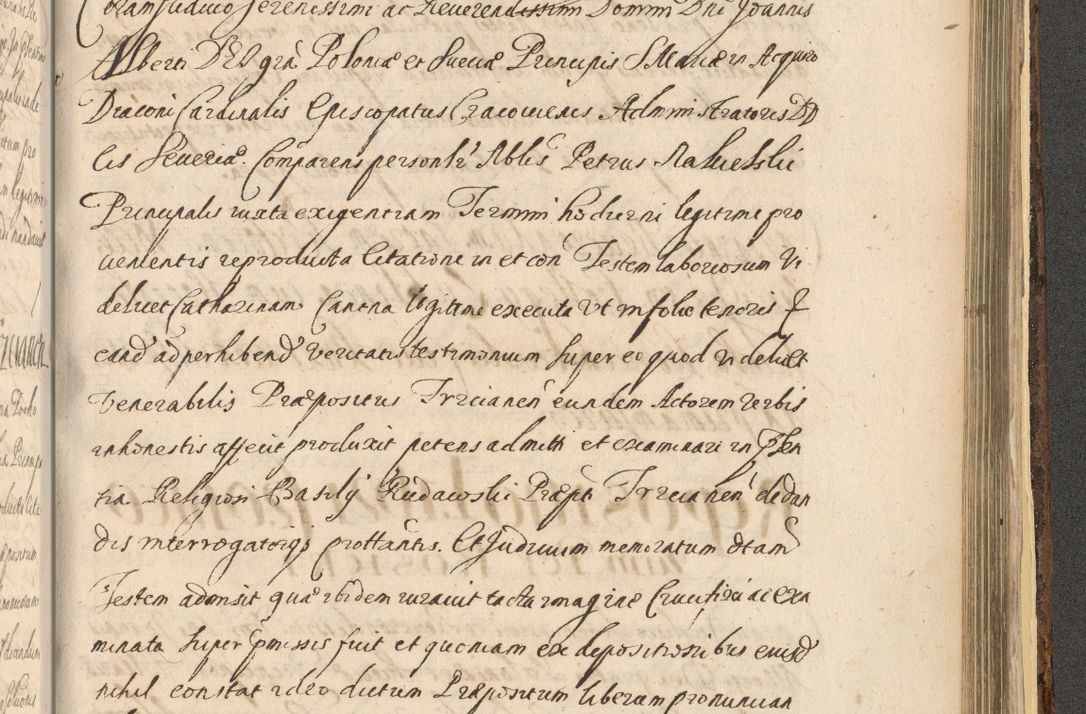 Coram Judicio Serenissimi ac Reverendissimi Domini Dni Joannis
Alberti D. G. grã Poloniæ et Sueciæ Principis S Mariæ in Acquiro
Diaconi Cardinalis Episcopatus Cracoviensis Administratoris D
cis Severiæ. Comparens personlr Nblis Petrus
Principalis iuxta exigentiam Termini hodierni legitime pro
venientis reproducta Citatione in et con Testem laboriosum Vi
delicet Catharinam Cantna legitime executa Ut in folio tenoris
eand ad perhibend Veritatis testimonium super eo quod Videlict
Venerabilis Præpositus Trzcianen eundem Actorem Verbis
inhonestis affecit produxit petens admitti et examinari in Præsen
tia Religiosi Basilÿ Rudawski Præpti Trzcianen dedan
dis interrogatorijs prottantis. Et Judicium memoratum dtam
Testem admisit quæ ibidem iuravit tacta imagine Crucifixi ac exa
minata super pmissis fuit et quoniam ex depositionibus eiusd
nihil constat ideo dictum Præpositum liberam pronuncian